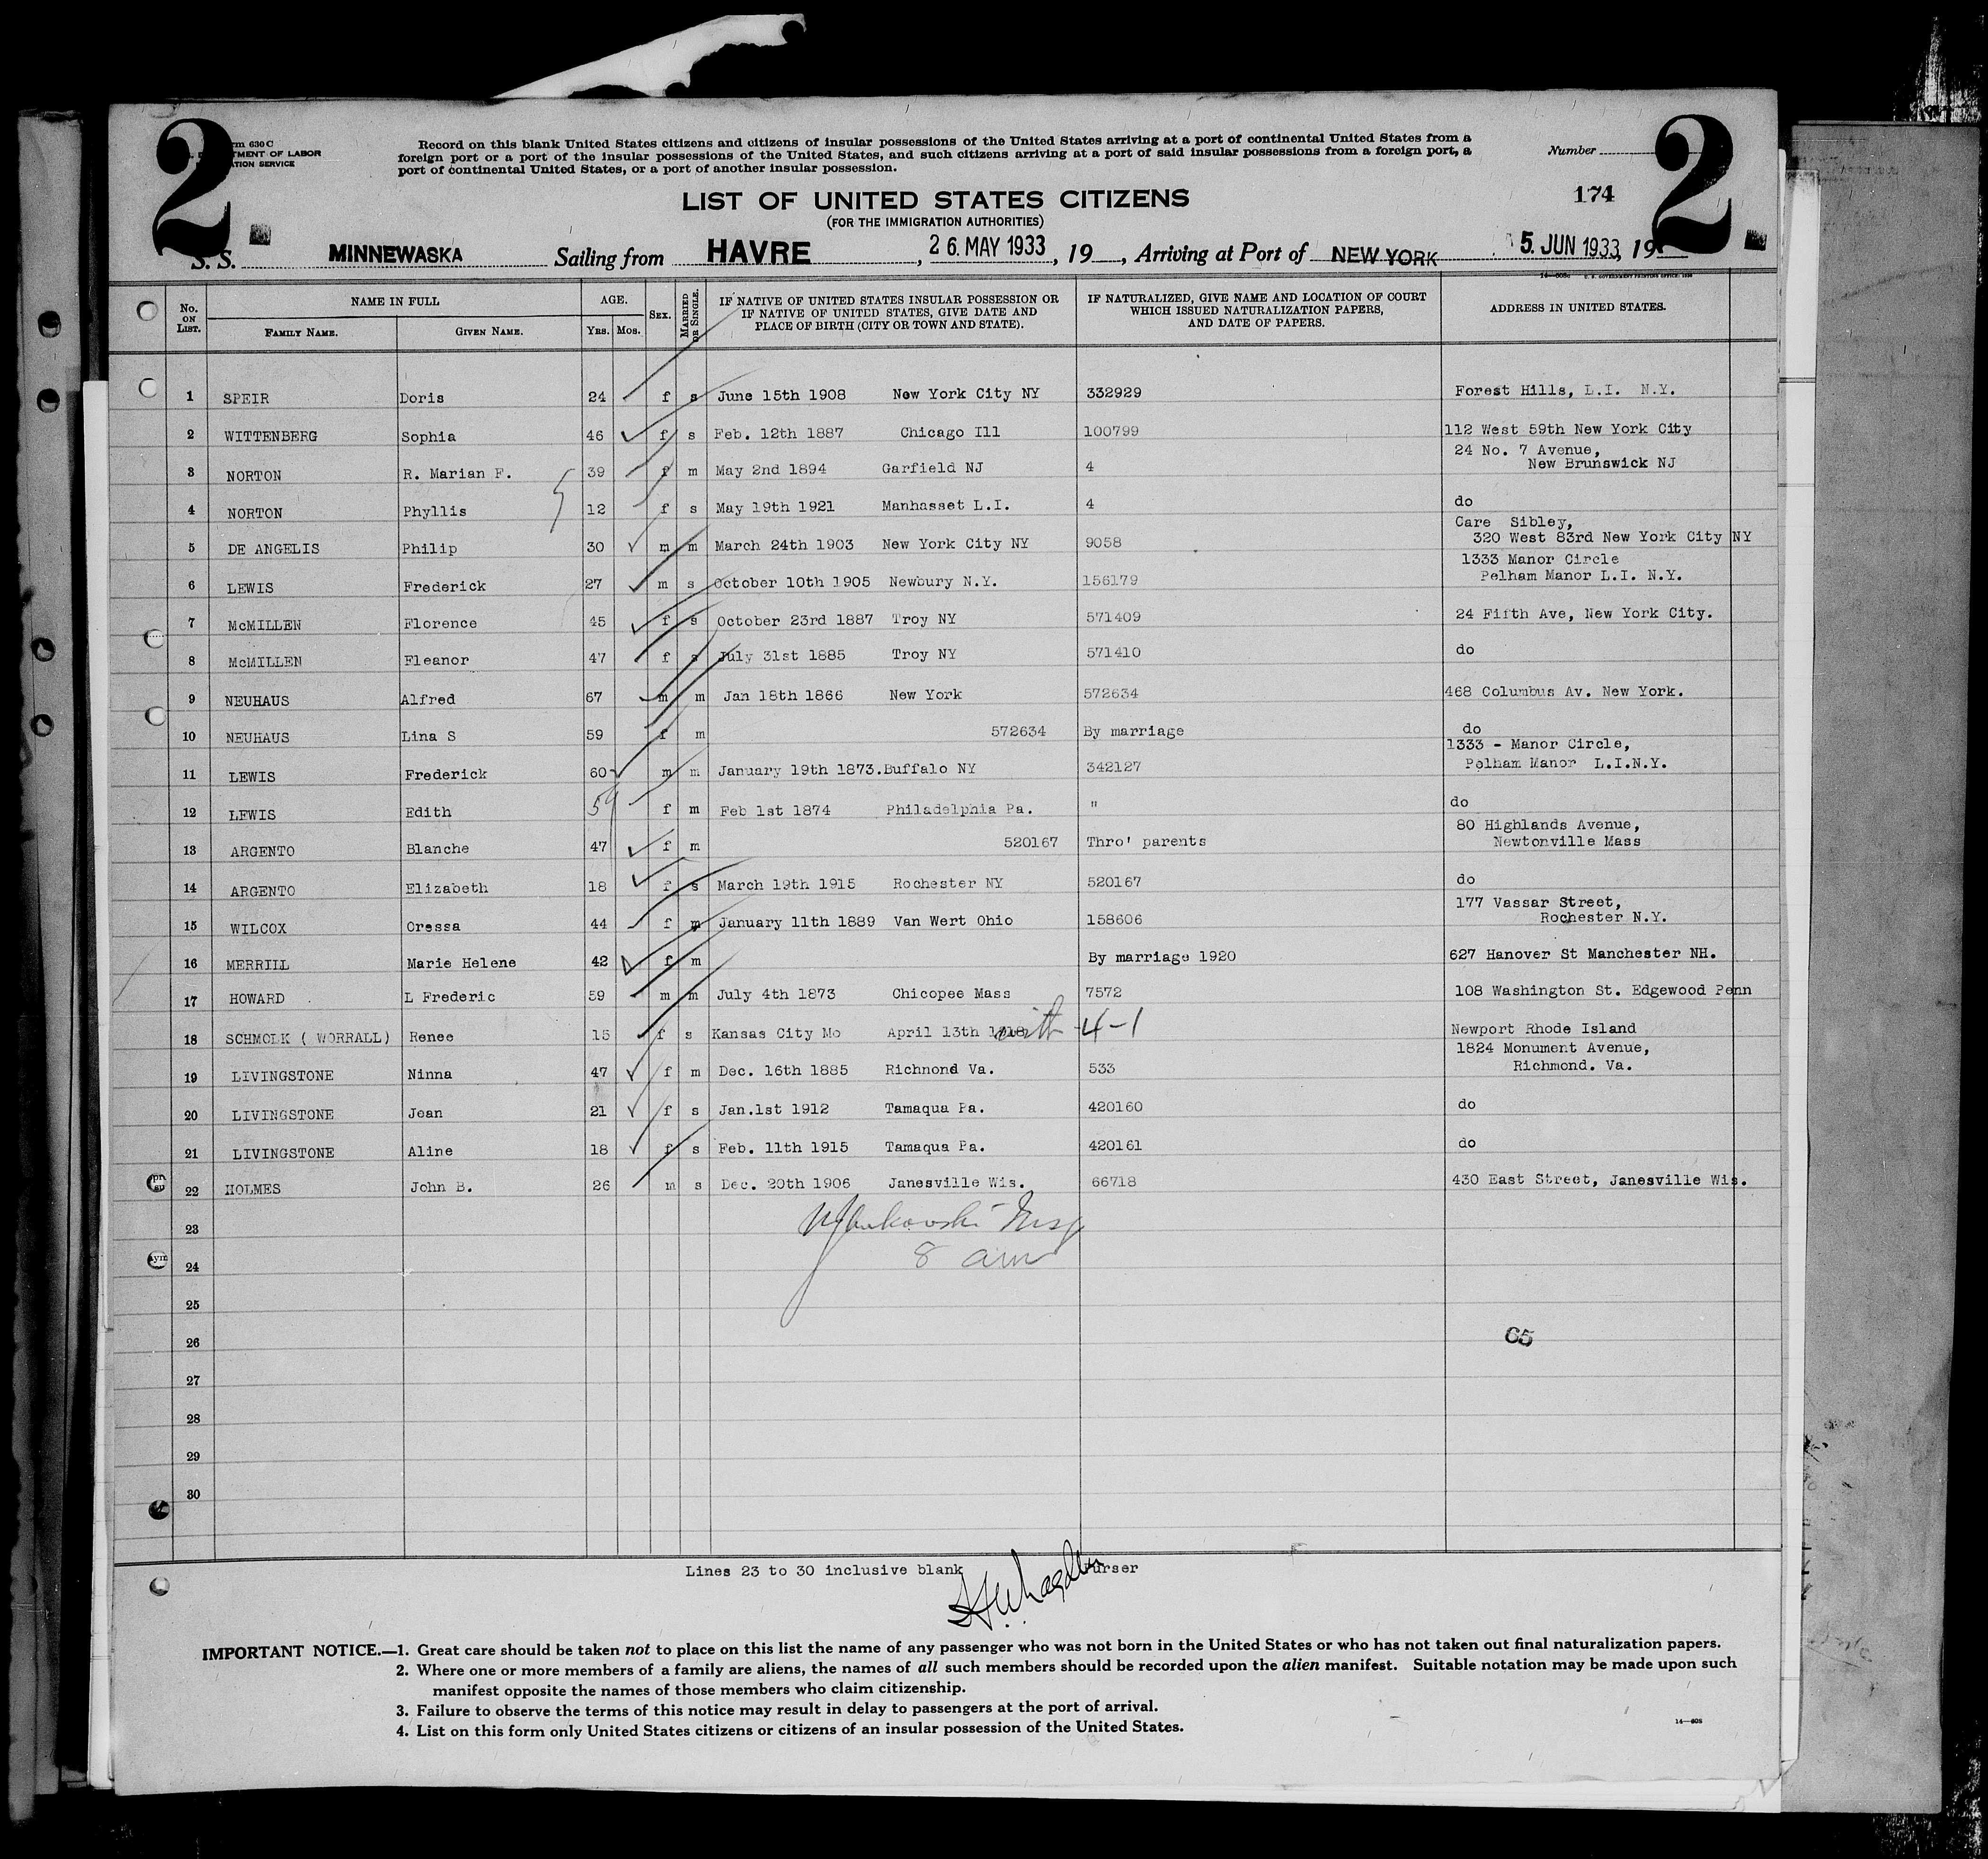 2 2
rm 630 C
TMENT OF LABOR
ATION SERVICE
Record on this blank United States citizens and citizens of insular possessions of the United States arriving at a port of continental United States from a
foreign port or a port of the insular possessions of the United States, and such citizens arriving at a port of said insular possessions from a foreign port, a
port of continental United States, or a port of another insular possession.
Number
174
LIST OF UNITED STATES CITIZENS
(FOR THE IMMIGRATION AUTHORITIES)
S. S. MINNEWASKA Sailing from HAVRE, 26. MAY 1933, 19__, Arriving at Port of NEW YORK 5. JUN 1933, 19
No. ON LIST.
NAME IN FULL
FAMILY NAME. GIVEN NAME.
AGE.
YRS. MOS.
SEX.
MARRIED OR SINGLE.
IF NATIVE OF UNITED STATES INSULAR POSSESSION OR
IF NATIVE OF UNITED STATES, GIVE DATE AND
PLACE OF BIRTH (CITY OR TOWN AND STATE).
IF NATURALIZED, GIVE NAME AND LOCATION OF COURT
WHICH ISSUED NATURALIZATION PAPERS,
AND DATE OF PAPERS.
ADDRESS IN UNITED STATES.
1 SPEIR Doris 24 f s June 15th 1908 New York City NY 332929 Forest Hills, L.I. N.Y.
2 WITTENBERG Sophia 46 f s Feb. 12th 1887 Chicago Ill 100799 112 West 59th New York City
3 NORTON R. Marian F. 39 f m May 2nd 1894 Garfield NJ 4 24 No. 7 Avenue,
New Brunswick NJ
4 NORTON Phyllis 12 f s May 19th 1921 Manhasset L.I. 4 do
5 DE ANGELIS Philip 30 m m March 24th 1903 New York City NY 9058 Care Sibley,
320 West 83rd New York City NY
6 LEWIS Frederick 27 m s October 10th 1905 Newbury N.Y. 156179 1333 Manor Circle
Pelham Manor L.I. N.Y.
7 McMILLEN Florence 45 f s October 23rd 1887 Troy NY 571409 24 Fifth Ave, New York City.
8 McMILLEN Eleanor 47 f s July 31st 1885 Troy NY 571410 do
9 NEUHAUS Alfred 67 m m Jan 18th 1866 New York 572634 468 Columbus Av. New York.
10 NEUHAUS Lina S 59 f m 572634 By marriage do
11 LEWIS Frederick 60 m m January 19th 1873. Buffalo NY 342127 1333 - Manor Circle,
Pelham Manor L.I.N.Y.
12 LEWIS Edith 59 f m Feb 1st 1874 Philadelphia Pa. " do
13 ARGENTO Blanche 47 f m 520167 Thro' parents 80 Highlands Avenue,
Newtonville Mass
14 ARGENTO Elizabeth 18 f s March 19th 1915 Rochester NY 520167 do
15 WILCOX Cressa 44 f m January 11th 1889 Van Wert Ohio 158606 177 Vassar Street,
Rochester N.Y.
16 MERRILL Marie Helene 42 f m By marriage 1920 627 Hanover St Manchester NH.
17 HOWARD L Frederic 59 m m July 4th 1873 Chicopee Mass 7572 108 Washington St. Edgewood Penn
18 SCHMOLK ( WORRALL) Renee 15 f s Kansas City Mo April 13th 1918 with 4-1 Newport Rhode Island
19 LIVINGSTONE Ninna 47 f m Dec. 16th 1885 Richnond Va. 533 1824 Monument Avenue,
Richmond. Va.
20 LIVINGSTONE Jean 21 f s Jan.1st 1912 Tamaqua Pa. 420160 do
21 LIVINGSTONE Aline 18 f s Feb. 11th 1915 Tamaqua Pa. 420161 do
22 HOLMES John B. 26 m s Dec. 20th 1906 Janesville Wis. 66718 430 East Street, Janesville Wis.
23
8 am
24
25
26
65
27
28
29
30
Lines 23 to 30 inclusive blank Purser
IMPORTANT NOTICE.—1. Great care should be taken not to place on this list the name of any passenger who was not born in the United States or who has not taken out final naturalization papers.
2. Where one or more members of a family are aliens, the names of all such members should be recorded upon the alien manifest. Suitable notation may be made upon such
manifest opposite the names of those members who claim citizenship.
3. Failure to observe the terms of this notice may result in delay to passengers at the port of arrival.
4. List on this form only United States citizens or citizens of an insular possession of the United States.
14—608